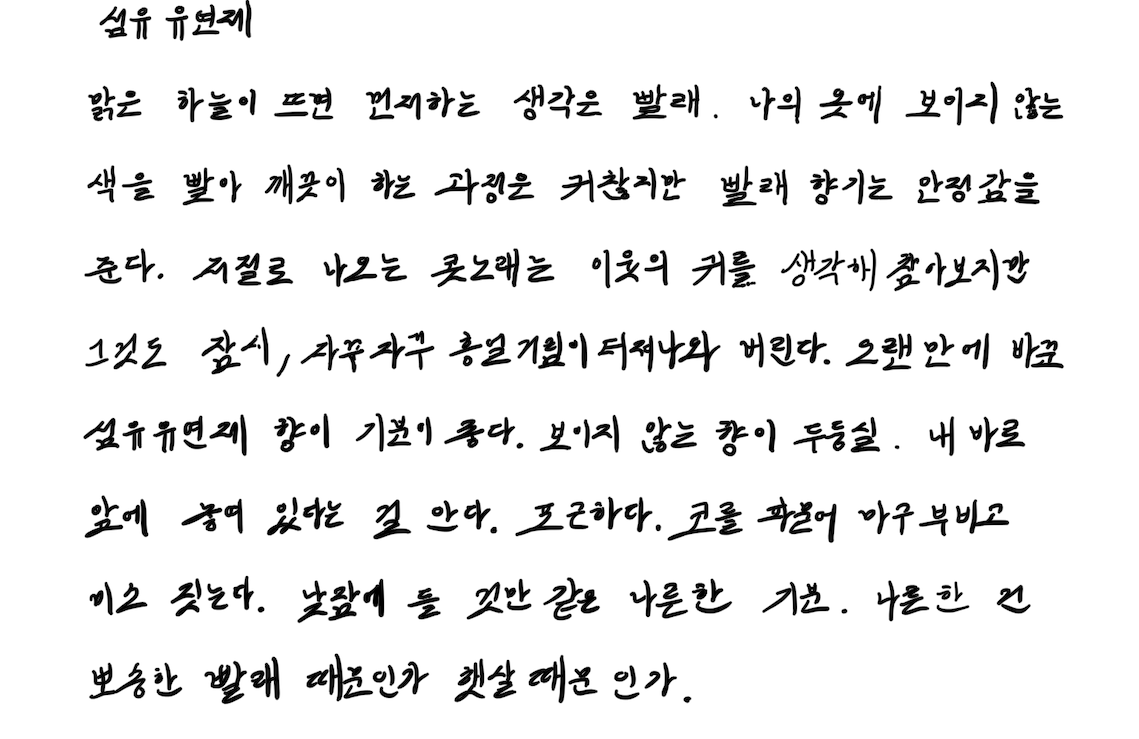 섬유 유연제
맑은 하늘이 뜨면 먼저하는 생각은 빨래. 나의 옷에 보이지 않는
색을 빨아 깨끗이 하는 과정은 귀찮지만 빨래 향기는 안정감을
준다. 저절로 나오는 콧노래는 이웃의 귀를 생각해 참아보지만
그것도 잠시, 자꾸자꾸 흥얼거림이 터져나와 버린다. 오랜만에 바꾼
섬유유연제 향이 기분이 좋다. 보이지 않는 향이 두둥실. 내 바로
앞에 놓여 있다는 걸 안다. 포근하다. 코를 파묻어 마구 부비고
미소 짓는다. 낮잠에 들 것만 같은 나른한 기분. 나른한 건
뽀송한 빨래 때문인가 햇살 때문인가.